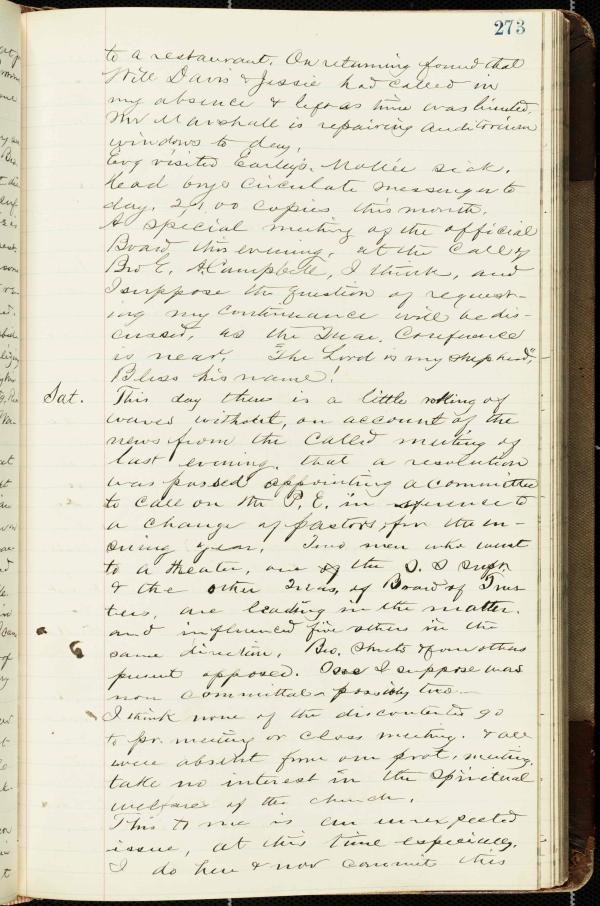 273
to a restaurant. On returning found that
Will Davis & Jessie had called in
my absence & left as time was limited.
Mr Marshall is repairing auditorium
windows to day.
Evg visited Early's. Mollie sick.
Head boys circulate messenger to
day. 2,100 copies this month.
A special meeting of the official
Board this evening, at the call of
Bro E. A Campbell, I think, and
I suppose the question of request-
ing my continuance will be dis-
cussed, as the Conference
is near. "The Lord is my shepherd",
Bless his name!
Sat. This day there is a little rolling of
waves without, on account of the
news from the called meeting of
last evening, that a resolution
was passed appointing a committee
to call on the P. E. in reference to
a change of pastors, for the en-
suing year. Two men who went
to a theater, one of the S. S Supt.
& the other Treas, of Board of Trus
tees, are leading in the matter.
and influenced five others in the
same direction. Bro. & four others
present opposed. One I suppose was
non committal - possibly two -
I think none of the discontented go
to pr. meeting or class meeting. & all
were absent from our prot. meeting.
take no interest in the Spiritual
welfare of the church.
This to me is an unexpected
issue, at this time especially.
I do here & now commit this